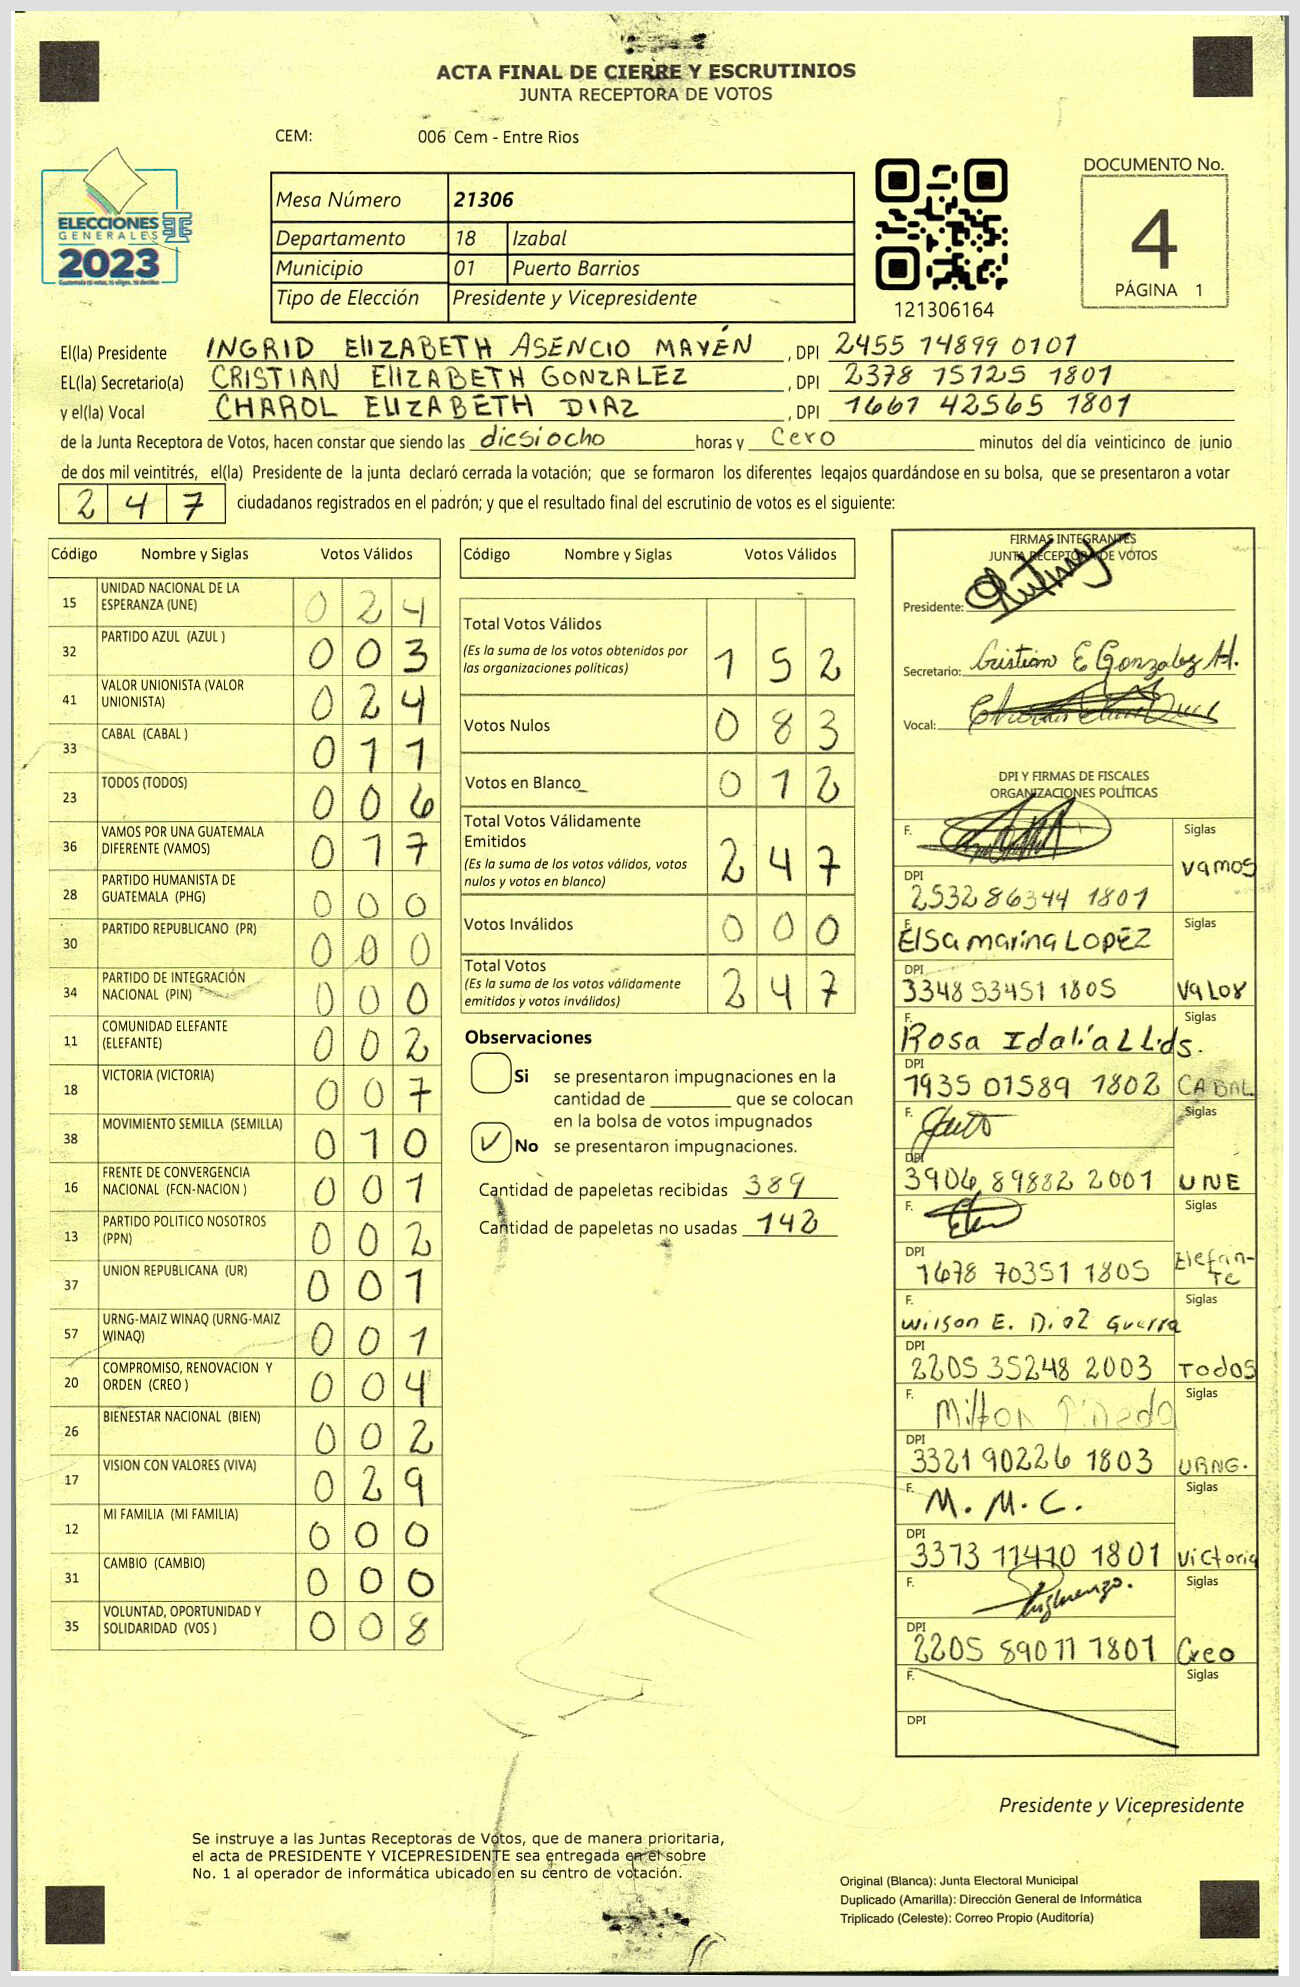 ACTA FINAL DE CIERRE Y ESCRUTINIOS
JUNTA RECEPTORA DE VOTOS
CEM: 006 Cem - Entre Rios
ELECCIONES
GENERALES
2023
Mesa Número 21306
Departamento 18 Izabal
Municipio 01 Puerto Barrios
Tipo de Elección Presidente y Vicepresidente
121306164
DOCUMENTO No.
4
PÁGINA 1
El(la) Presidente INGRID ElIZABETH ASENCIO MAYÉN , DPI 2455 14899 0101
EL(la) Secretario(a) CRISTIAN ElIZABETH GONZALEZ , DPI 2378 15125 1801
y el(la) Vocal CHAROL ELIZABETH DIAZ , DPI 1661 42565 1801
de la Junta Receptora de Votos, hacen constar que siendo las diesiocho horas y Cero minutos del día veinticinco de junio
de dos mil veintitrés, el(la) Presidente de la junta declaró cerrada la votación; que se formaron los diferentes legajos quardándose en su bolsa, que se presentaron a votar
2 4 7 ciudadanos registrados en el padrón; y que el resultado final del escrutinio de votos es el siguiente:
Código Nombre y Siglas Votos Válidos
15 UNIDAD NACIONAL DE LA ESPERANZA (UNE) 0 2 4
32 PARTIDO AZUL (AZUL ) 0 0 3
41 VALOR UNIONISTA (VALOR UNIONISTA) 0 2 4
33 CABAL (CABAL ) 0 1 1
23 TODOS (TODOS) 0 0 6
36 VAMOS POR UNA GUATEMALA DIFERENTE (VAMOS) 0 1 7
28 PARTIDO HUMANISTA DE GUATEMALA (PHG) 0 0 0
30 PARTIDO REPUBLICANO (PR) 0 0 0
34 PARTIDO DE INTEGRACIÓN NACIONAL (PIN) 0 0 0
11 COMUNIDAD ELEFANTE (ELEFANTE) 0 0 2
18 VICTORIA (VICTORIA) 0 0 7
38 MOVIMIENTO SEMILLA (SEMILLA) 0 1 0
16 FRENTE DE CONVERGENCIA NACIONAL (FCN-NACION ) 0 0 1
13 PARTIDO POLITICO NOSOTROS (PPN) 0 0 2
37 UNION REPUBLICANA (UR) 0 0 1
57 URNG-MAIZ WINAQ (URNG-MAIZ WINAQ) 0 0 1
20 COMPROMISO, RENOVACION Y ORDEN (CREO ) 0 0 4
26 BIENESTAR NACIONAL (BIEN) 0 0 2
17 VISION CON VALORES (VIVA) 0 2 9
12 MI FAMILIA (MI FAMILIA) 0 0 0
31 CAMBIO (CAMBIO) 0 0 0
35 VOLUNTAD, OPORTUNIDAD Y SOLIDARIDAD (VOS ) 0 0 8
Código Nombre y Siglas Votos Válidos
Total Votos Válidos
(Es la suma de los votos obtenidos por las organizaciones politicas) 1 5 2
Votos Nulos 0 8 3
Votos en Blanco 0 1 2
Total Votos Válidamente Emitidos
(Es la suma de los votos válidos, votos nulos y votos en blanco) 2 4 7
Votos Inválidos 0 0 0
Total Votos
(Es la suma de los votos válidamente emitidos y votos inválidos) 2 4 7
Observaciones
Si se presentaron impugnaciones en la
cantidad de ________ que se colocan
en la bolsa de votos impugnados
No se presentaron impugnaciones.
Cantidad de papeletas recibidas 389
Cantidad de papeletas no usadas 142
FIRMAS INTEGRANTES
JUNTA RECEPTORA DE VOTOS
Presidente:
Secretario: Cristian E Gonzalez H.
Vocal:
DPI Y FIRMAS DE FISCALES
ORGANIZACIONES POLÍTICAS
F. Siglas
DPI 2532 86344 1801 Vamos
F. Elsa marina LOPEZ Siglas
DPI 3348 53451 1805 Valor
F. Rosa Idalia L Lds. Siglas
DPI 1935 01589 1802 CABAL
F. Siglas
DPI 3906 89882 2001 UNE
F. Siglas
DPI 1678 70351 1805 Elefan-
Te
F. Wilson E. Diaz Guerra Siglas
DPI 2205 35248 2003 Todos
F. Milton Pineda Siglas
DPI 3321 90226 1803 URNG.
F. M. M. C. Siglas
DPI 3373 11410 1801 Victoria
F. Siglas
DPI 2205 89011 1801 Creo
F. Siglas
DPI
Presidente y Vicepresidente
Se instruye a las Juntas Receptoras de Votos, que de manera prioritaria,
el acta de PRESIDENTE Y VICEPRESIDENTE sea entregada en el sobre
No. 1 al operador de informática ubicado en su centro de votación.
Original (Blanca): Junta Electoral Municipal
Duplicado (Amarilla): Dirección General de Informática
Triplicado (Celeste): Correo Propio (Auditoría)